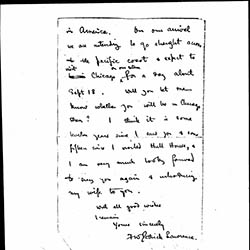 in America. On our arrival
we are intending to go straight across
to the pacific coast & expect to
Chicago, for a day about
Sept 18. Will you let me
know whether you will be in Chicago
then? I think it is some
twelve years since I saw you & some
fifteen since I visited Hull House, &
I am very much looking forward
to seeing you again & introducing
my wife to you.
With all good wishes
I remain
Yours sincerely
F W Pethick Lawrence.